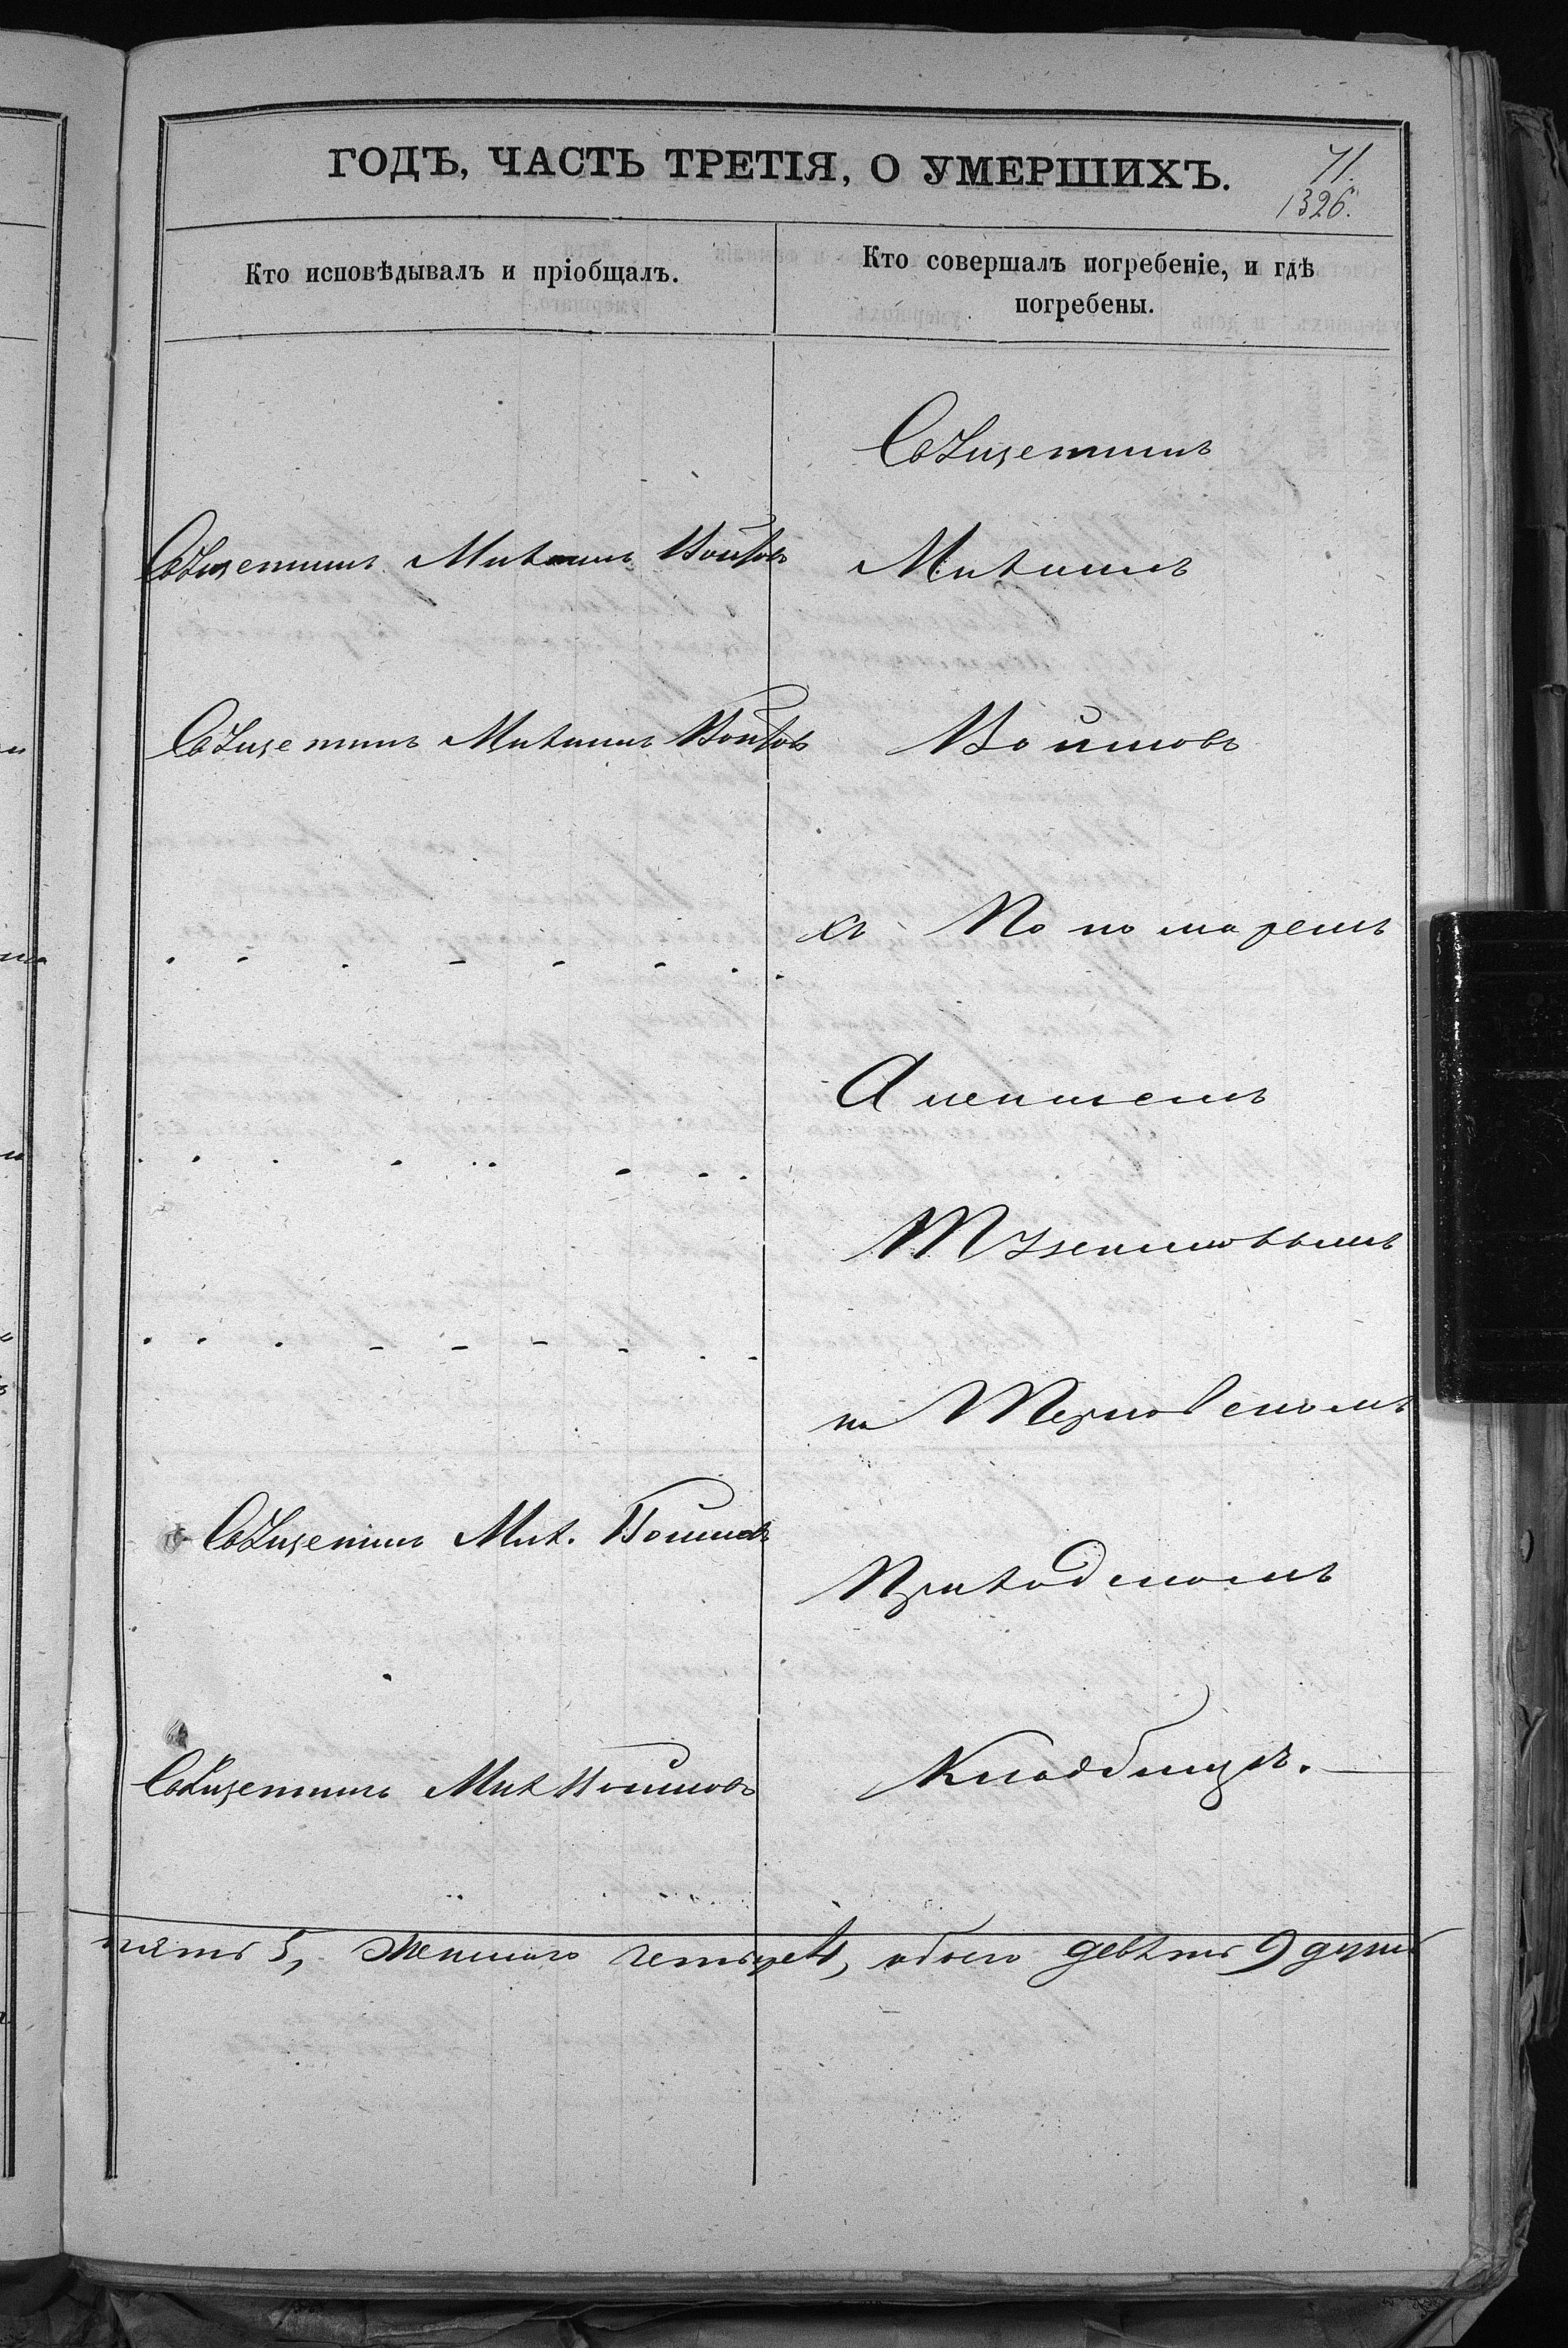 ГОДЪ, ЧАСТЬ ТРЕТІЯ, О УМЕРШИХЪ.
71.
1326.
Кто исповѣдывалъ и пріобщалъ.
Кто совершалъ погребеніе, и гдѣ
погребены.
Священникъ
Священникъ Михаилъ Войновъ
Михаилъ
Священникъ Михаилъ Войновъ
Войновъ
съ Пономаремъ
на Терновскомъ
Священникъ Мих. Войновъ
Приходскомъ
Священникъ Мих Войновъ
Кладбищѣ.
пять 5, женскаго четыре 4, обоего девять 9 душъ